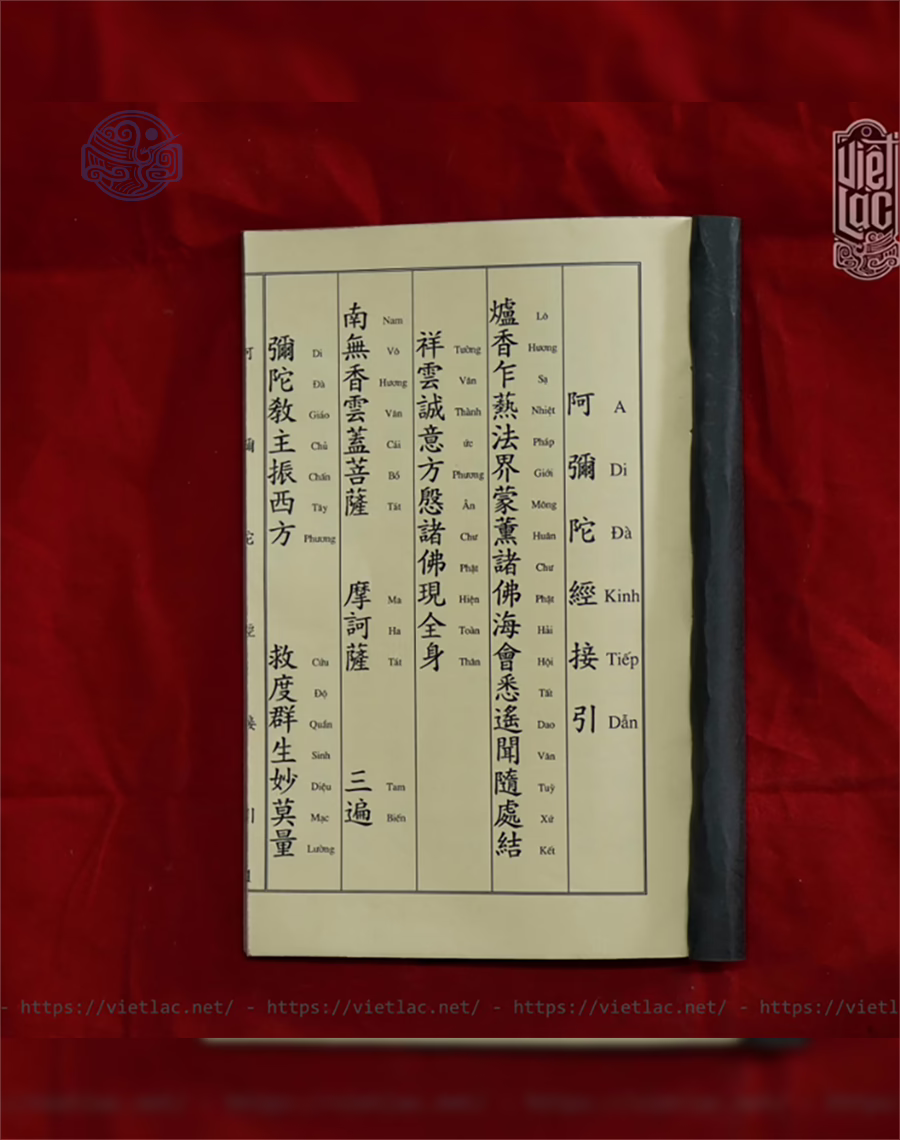 Việt Lạc
A Di Đà Kinh Tiếp Dẫn
阿彌陀經接引
Lò Hương Sạ Nhiệt Pháp Giới Mông Huân Chư Phật Hải Hội Tất Dao Văn Tuỳ Xứ Kết
爐香乍爇法界蒙薰諸佛海會悉遙聞隨處結
Tường Vân Thành ức Phương Ân Chư Phật Hiện Toàn Thân
祥雲誠意方慇諸佛現全身
Nam Vô Hương Vân Cái Bồ Tát Ma Ha Tát Tam Biến
南無香雲蓋菩薩 摩訶薩 三遍
Di Đà Giáo Chủ Chấn Tây Phương Cứu Độ Quần Sinh Diệu Mạc Lường
彌陀教主振西方 救度群生妙莫量
- https://vietlac.net/ - https://vietlac.net/ - https://vietlac.net/ - https://vietl